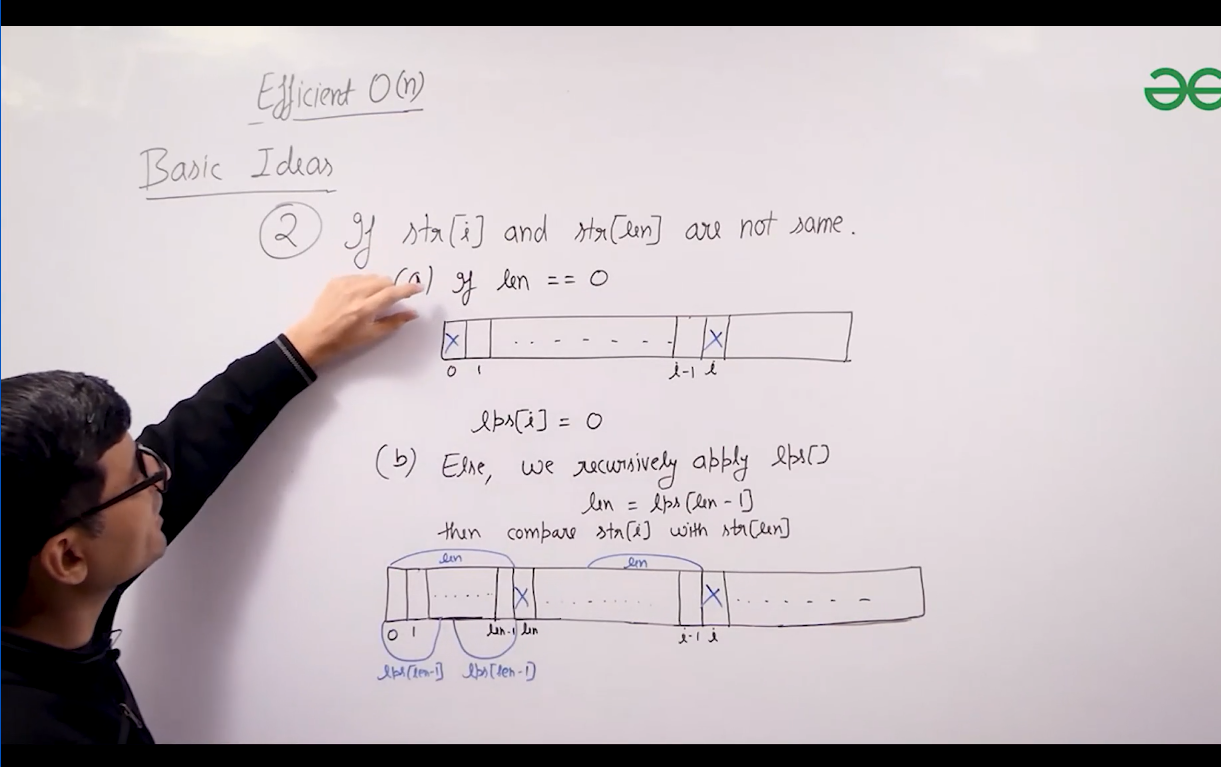 Efficient O(n)
Basic Ideas
② If str[i] and str[len] are not same.
(a) If len == 0
X X
0 1 i-1 i
lps[i] = 0
(b) Else, we recursively apply lps[]
len = lps[len-1]
then compare str[i] with str[len]
len len
X X
0 1 len-1 len i-1 i
lps[len-1] lps[len-1]